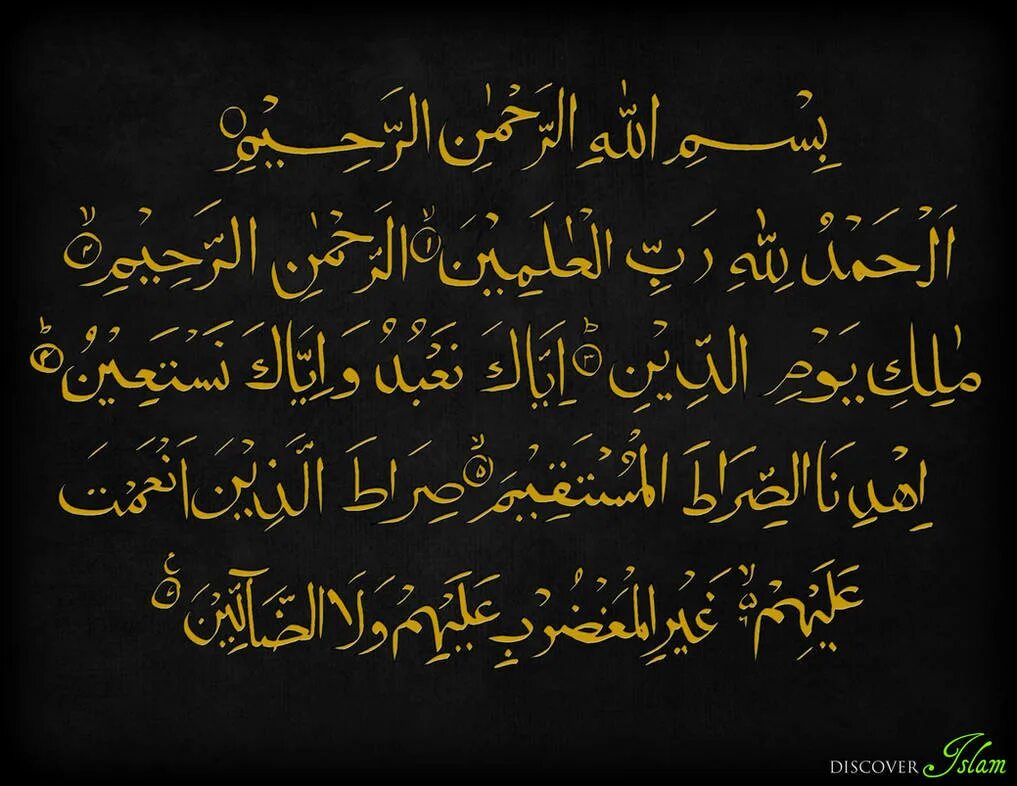 بِسْمِ اللّٰهِ الرَّحْمٰنِ الرَّحِيْمِ ۝
اَلْحَمْدُ لِلّٰهِ رَبِّ الْعٰلَمِيْنَ ۙ﴿۱﴾ الرَّحْمٰنِ الرَّحِيْمِ ۙ﴿۲﴾
مٰلِكِ يَوْمِ الدِّيْنِ ؕ﴿۳﴾ اِيَّاكَ نَعْبُدُ وَ اِيَّاكَ نَسْتَعِيْنُ ؕ﴿۴﴾
اِهْدِنَا الصِّرَاطَ الْمُسْتَقِيْمَ ۙ﴿۵﴾ صِرَاطَ الَّذِيْنَ اَنْعَمْتَ
عَلَيْهِمْ ۙ۬ۦ غَيْرِ الْمَغْضُوْبِ عَلَيْهِمْ وَلَا الضَّآلِّيْنَ
DISCOVER Islam